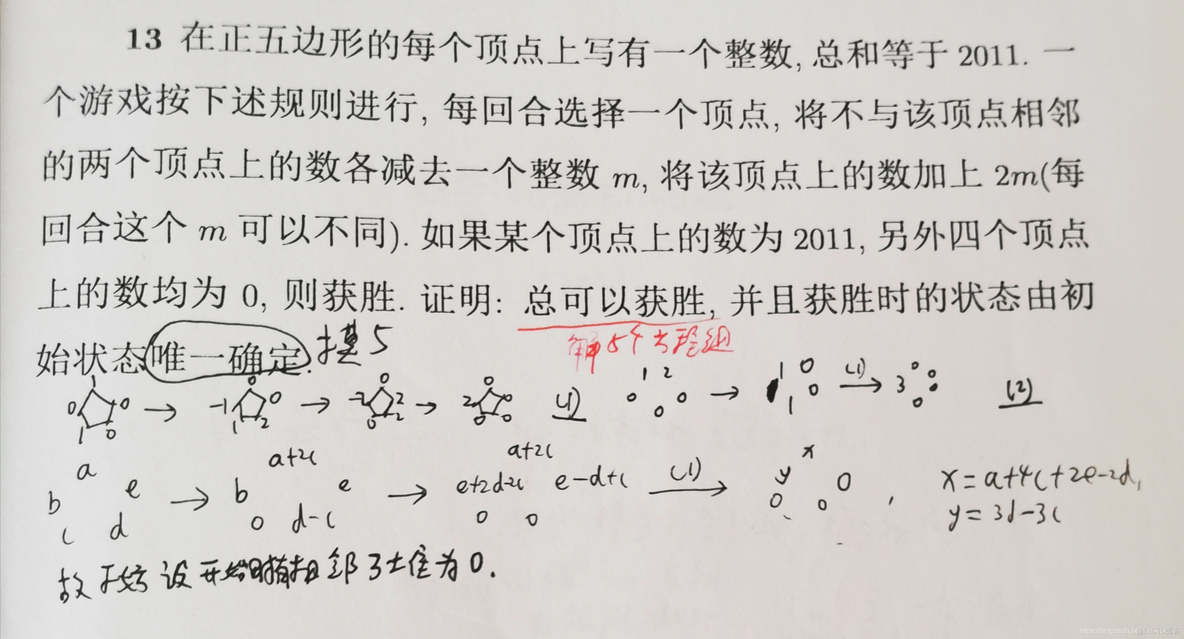 13 在正五边形的每个顶点上写有一个整数, 总和等于 2011. 一
个游戏按下述规则进行, 每回合选择一个顶点, 将不与该顶点相邻
的两个顶点上的数各减去一个整数 m, 将该顶点上的数加上 2m(每
回合这个 m 可以不同). 如果某个顶点上的数为 2011, 另外四个顶点
上的数均为 0, 则获胜. 证明: 总可以获胜, 并且获胜时的状态由初
始状态唯一确定. 模5
解5个方程组
1 0 0 1 0 → -1 0 0 1 2 → -2 0 2 0 2 → 2 0 0 0 0 (1)
1 2 0 0 0 → 1 0 0 1 (1)→ 3 0 0 0 0 (2)
a b e c d → a+2c b e 0 d-c → a+2c e+2d-2c e-d+c 0 0 (1)→ x y 0 0 0 , x=a+4c+2e-2d,
y=3d-3c
故不妨设开始时有相邻3个值为0.